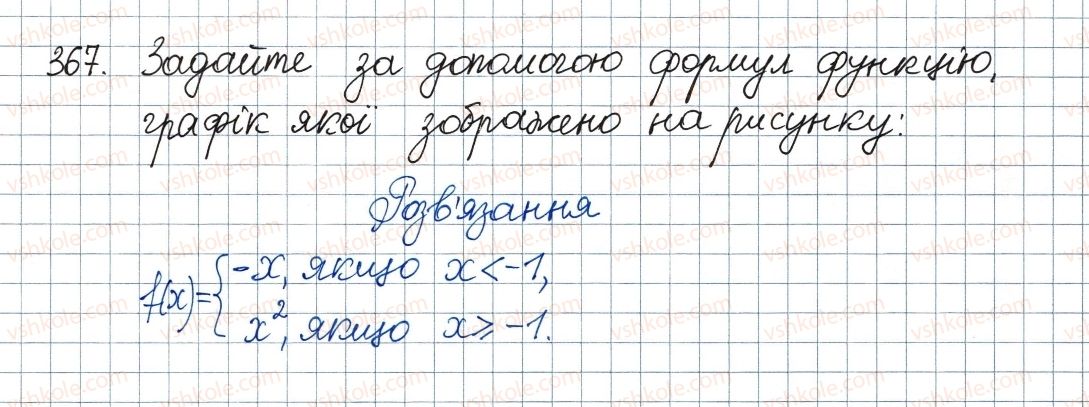 367. Задайте за допомогою формул функцію,
графік якої зображено на рисунку:
Розв'язання
f(x)={-x, якщо x<-1,
x², якщо x≥-1.